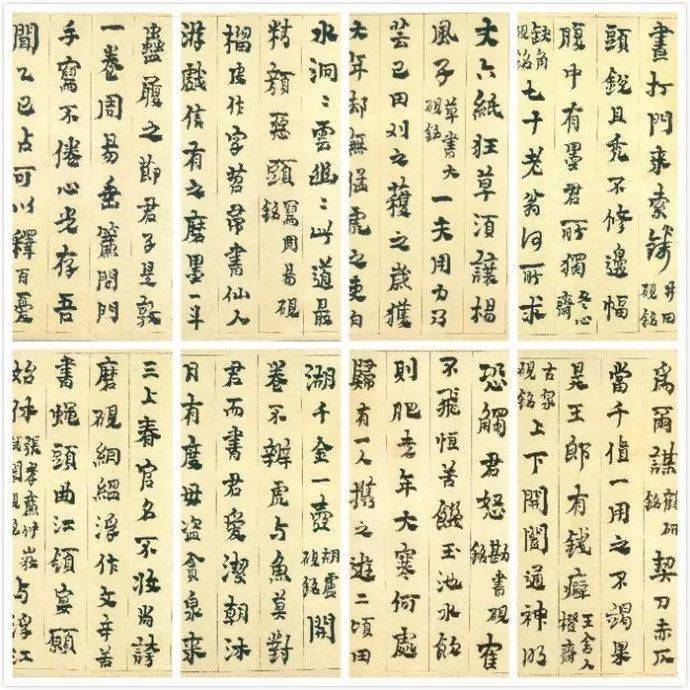 蠱履之節君子是敦
一卷周易垂簾閉門
手寫不倦心光存吾
聞乙巳占可以釋百憂
水洞〻雲幽〻此道最
精顏惡頭寫周易硯銘
榴皮作字苕帚書仙人
游戲信有之磨墨一斗
丈六紙狂草須讓楊
風子草書大硯銘一夫用力乃
芸己田刈之穫之歲獲
大年却無猛虎之吏白
晝打門來索錢井田硯銘
頭銳且禿不修邊幅
腹中有墨君所獨冬心齋
缺角硯銘七十老翁何所求
三上春官名不妝尚誇
磨硯絪縕浮作文辛苦
書蠅頭曲江領宴願
始休張孝廉仲与浮江
湖千金一壺葫蘆硯銘開
卷不辨虎与魚莫對
君而書君愛潔朝沐
日有度毋盜貪泉來
恐觸君怒勘書硯銘雀
不飛恒苦饑玉池水飽
則肥耆年大寒何處
歸有一人攜之遊二頃田
為爾謀硏銘契刀赤仄
當千值一用之不竭果
是王郎有錢癖王舍人橙齋
古泉硯銘上下開闔通神明